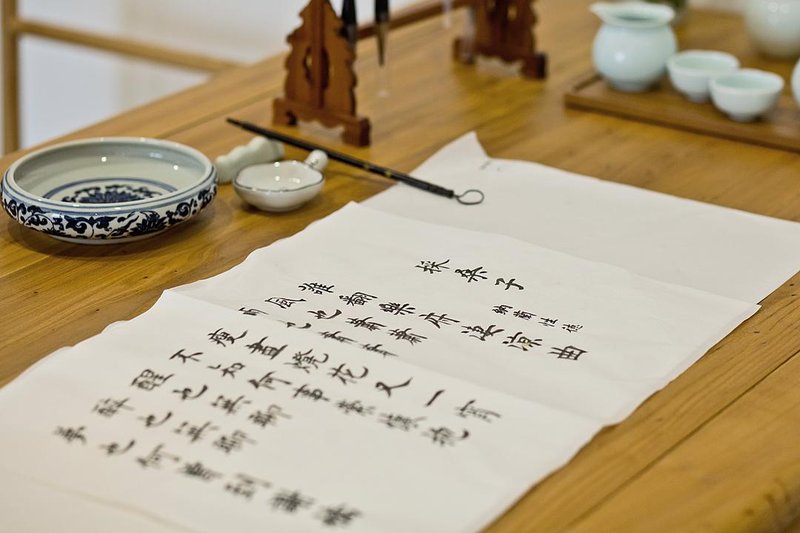 採桑子
納蘭性德
誰翻樂府淒涼曲
風也蕭蕭
雨也蕭蕭
瘦盡燈花又一宵
不知何事縈懷抱
醒也無聊
醉也無聊
夢也何曾到謝橋